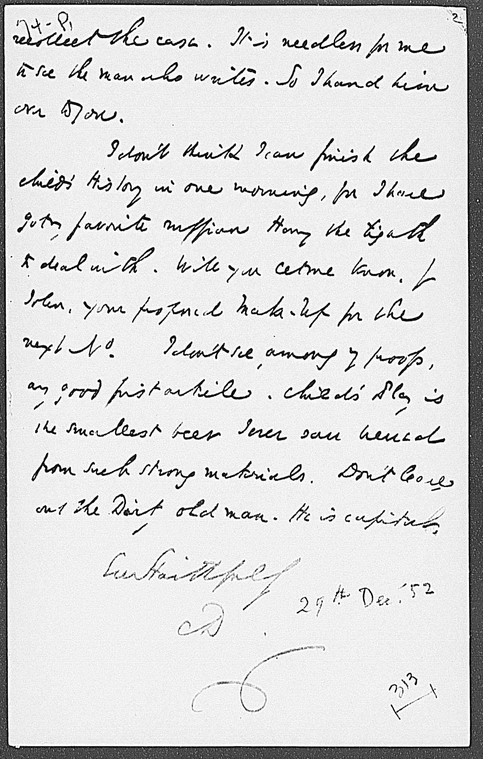 2
recollect the case. It is needless for me
to see the man who writes. So I hand him
over to you.
I don't think I can finish the
child's History in one morning, for I have
got my favorite ruffian Henry the Eighth
to deal with. Will you let me know, if
John, your proposed Make-Up for the
next No. I don't see, among my proofs,
any good first article. Child's Play is
the smallest beer I ever saw brewed
from such strong materials. Don't leave
out the Dirty old man. He is capital.
Ever Faithfully
CD
29th Dec. '52
313